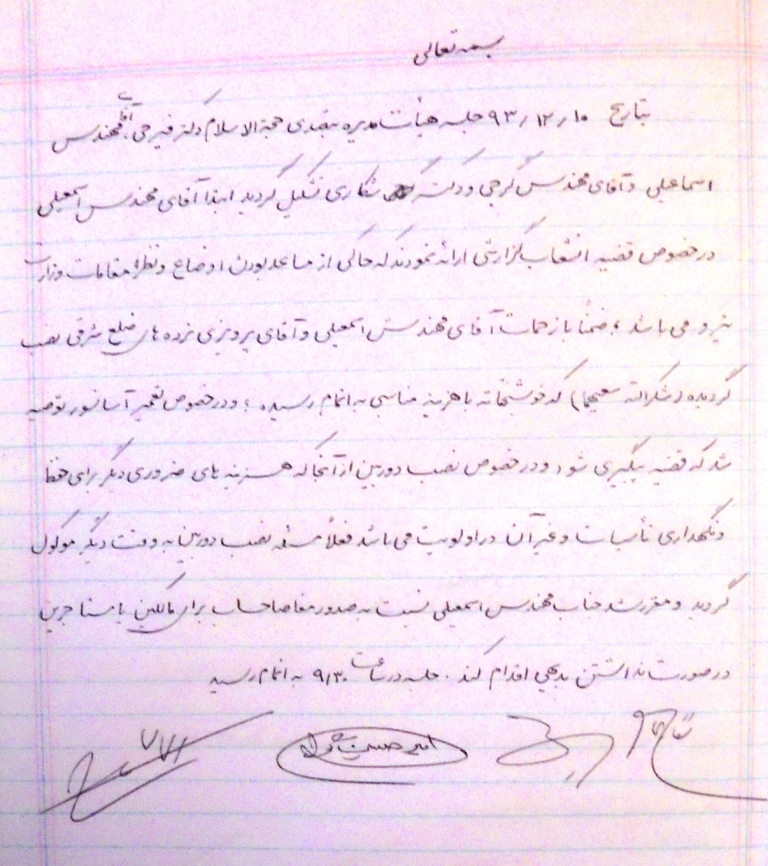 بسمه تعالی
بتاریخ ۹۳/۱۲/۱۰ جلسه هیأت مدیره بتصدی حجة الاسلام دکتر فیرحی، آقای مهندس
اسماعیلی و آقای مهندس گرجی و دکتر شکاری تشکیل گردید ابتدا آقای مهندس اسمعیلی
در خصوص قضیه انشعاب گزارشی ارائه نمودند که حاکی از مساعد بودن اوضاع و نظر مقامات وزارت
نیرو می باشد؛ ضمناً با زحمات آقای مهندس اسمعیلی و آقای پرویزی نرده های ضلع شرقی نصب
گردیده (شکرالله سعیهما) که خوشبختانه با هزینه مناسبی به اتمام رسیده؛ و در خصوص تعمیر آسانسور توصیه
شد که قضیه پیگیری شود و در خصوص نصب دوربین از آنجا که هزینه های ضروری دیگر برای حفظ
و نگهداری تأسیسات و غیر آن در اولویت می باشد فعلاً مسئله نصب دوربین به وقت دیگر موکول
گردید و مقرر شد جناب مهندس اسمعیلی نسبت به صدور مفاصا حساب برای مالکین یا مستأجرین
در صورت نداشتن بدهی اقدام کند. جلسه در ساعت ۹/۳۰ به اتمام رسید